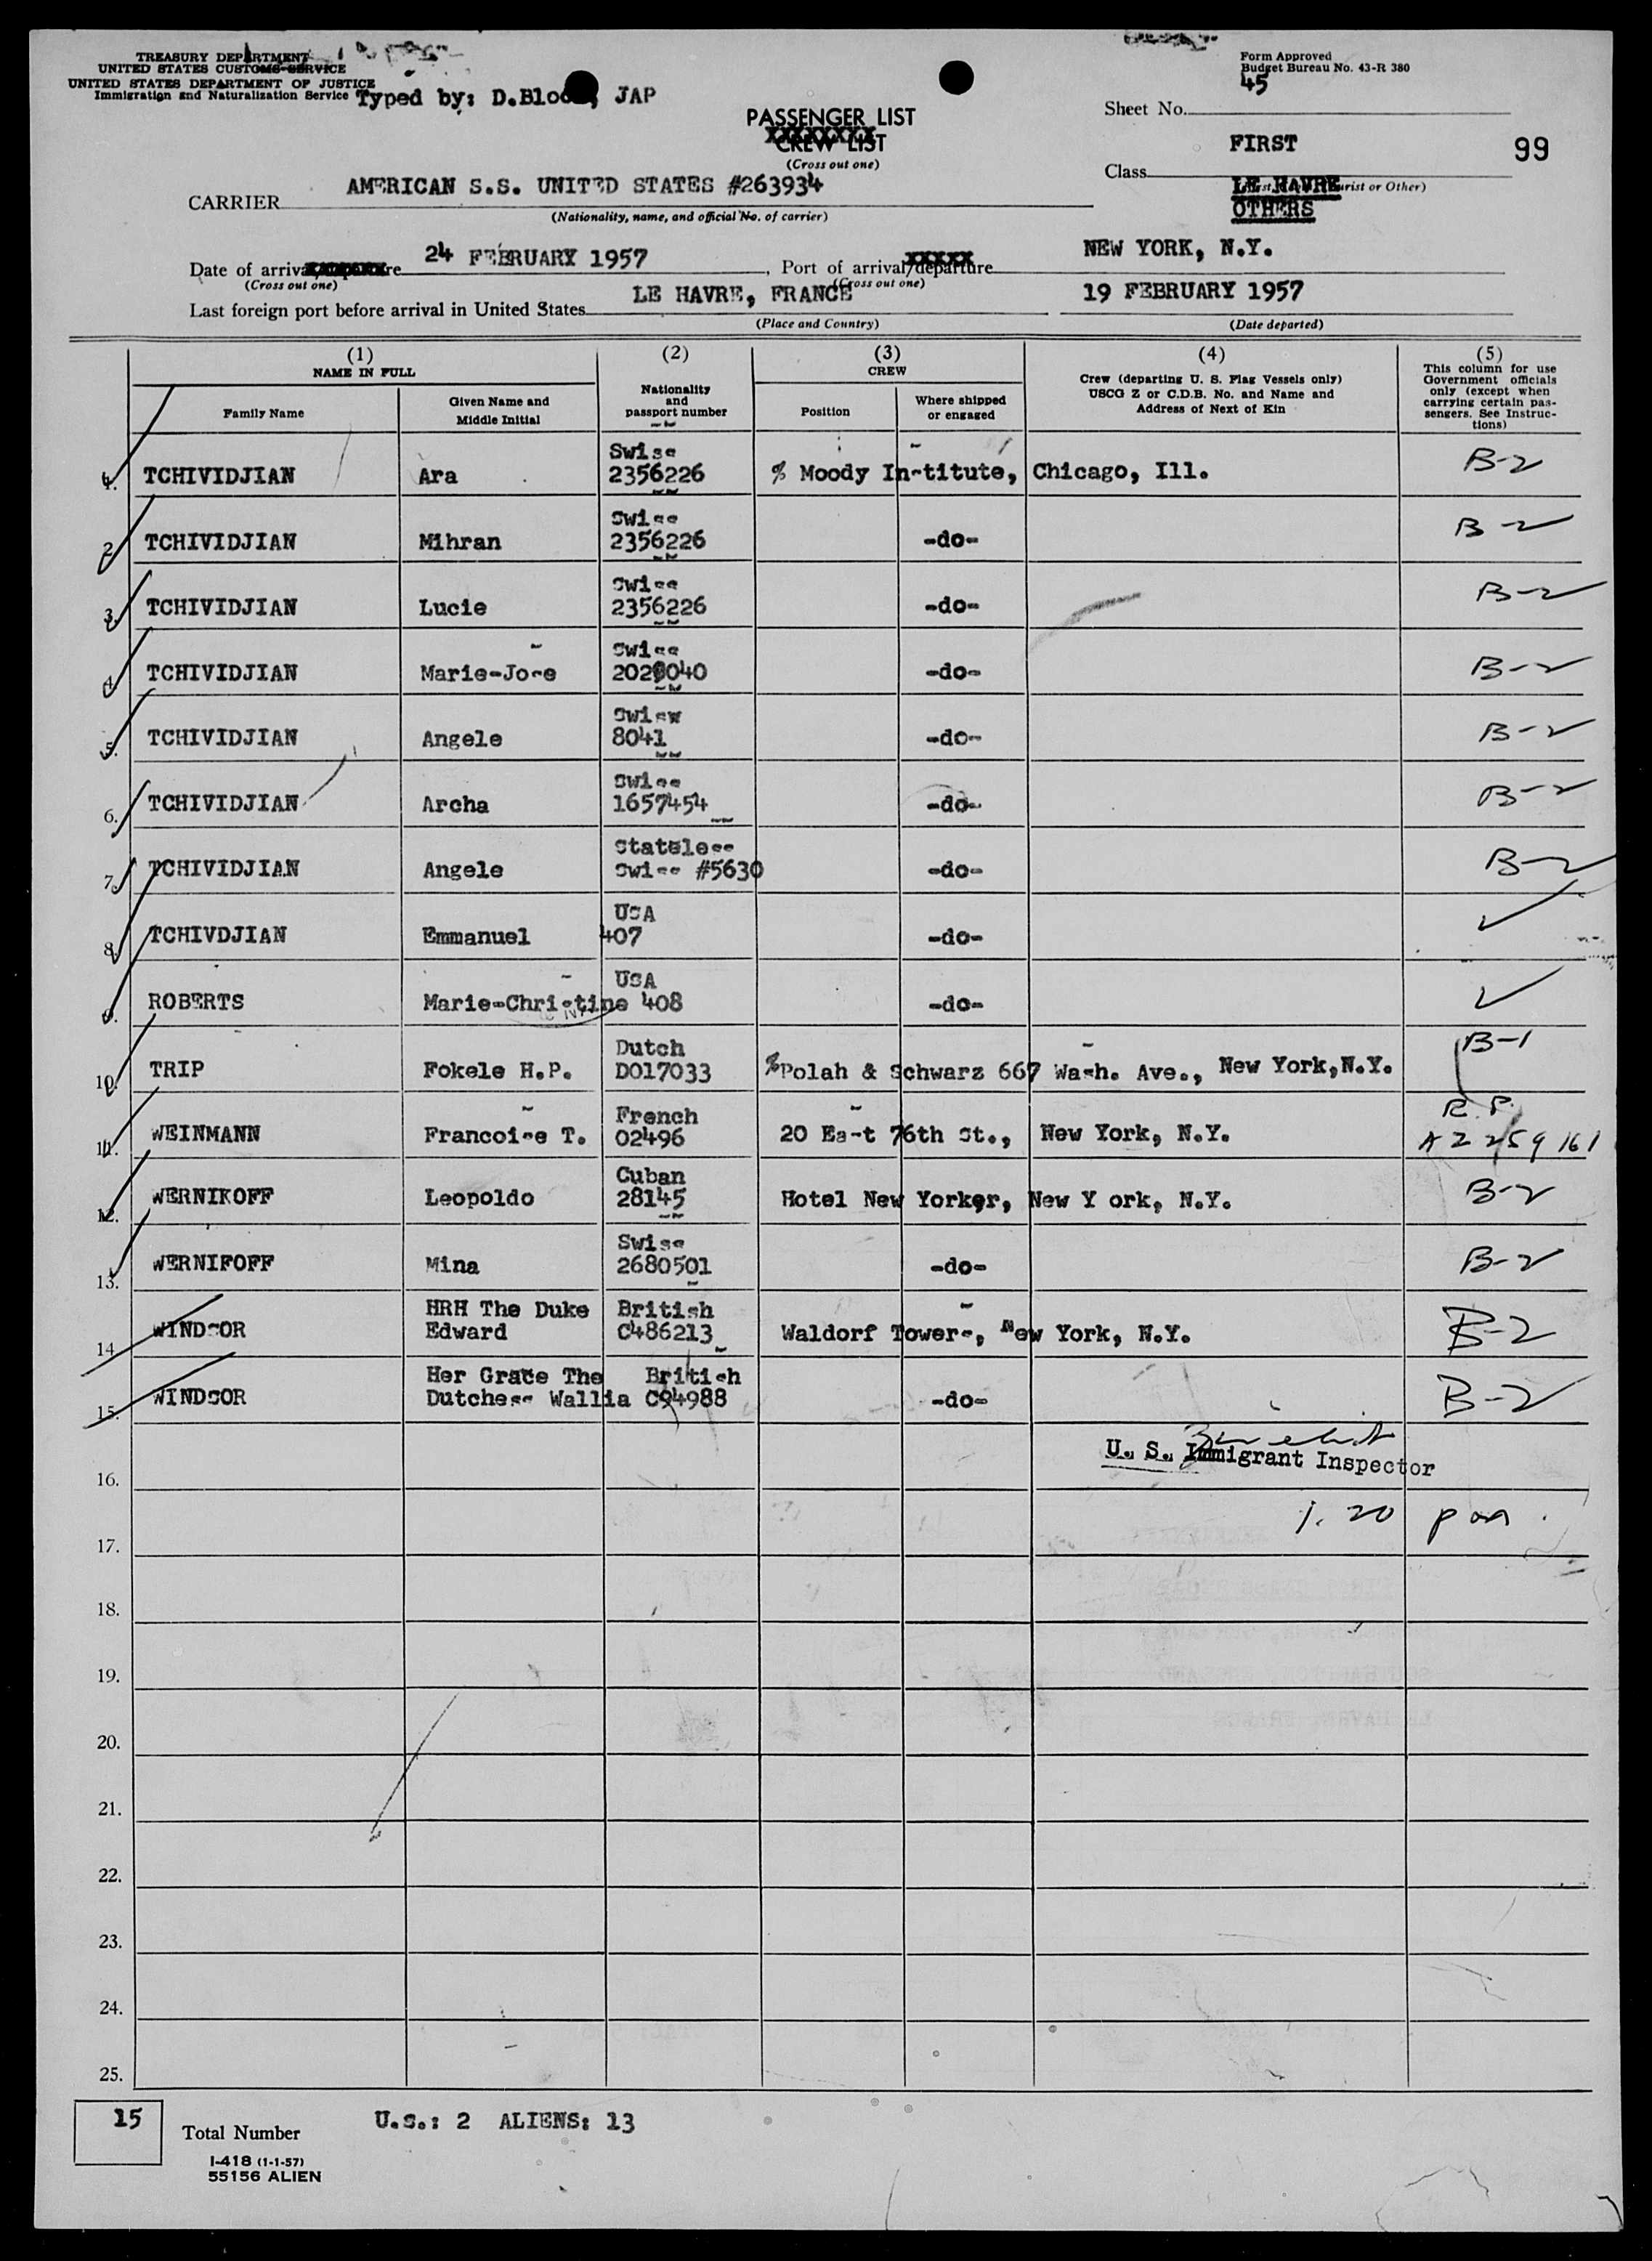 TREASURY DEPARTMENT
UNITED STATES CUSTOMS SERVICE
UNITED STATES DEPARTMENT OF JUSTICE
Immigration and Naturalization Service
Typed by: D.Bloc, JAP
PASSENGER LIST
CREW LIST
(Cross out one)
Form Approved
Budget Bureau No. 43-R 380
45
Sheet No.
FIRST
99
Class
(First, Tourist or Other)
LE HAVRE
OTHERS
CARRIER AMERICAN S.S. UNITED STATES #263934
(Nationality, name, and official No. of carrier)
Date of arrival/departure 24 FEBRUARY 1957, Port of arrival/departure NEW YORK, N.Y.
(Cross out one) (Cross out one)
Last foreign port before arrival in United States LE HAVRE, FRANCE 19 FEBRUARY 1957
(Place and Country) (Date departed)
(1) NAME IN FULL
Family Name
Given Name and Middle Initial
(2) Nationality and passport number
(3) CREW
Position
Where shipped or engaged
(4) Crew (departing U. S. Flag Vessels only) USCG Z or C.D.B. No. and Name and Address of Next of Kin
(5) This column for use Government officials only (except when carrying certain passengers. See Instructions)
1. TCHIVIDJIAN Ara Swiss 2356226 % Moody Institute, Chicago, Ill. B-2
2. TCHIVIDJIAN Mihran Swiss 2356226 -do- B-2
3. TCHIVIDJIAN Lucie Swiss 2356226 -do- B-2
4. TCHIVIDJIAN Marie-Jose Swiss 2029040 -do- B-2
5. TCHIVIDJIAN Angele Swisw 8041 -do- B-2
6. TCHIVIDJIAN Archa Swiss 1657454 -do- B-2
7. TCHIVIDJIAN Angele Stateless Swiss #5630 -do- B-2
8. TCHIVDJIAN Emmanuel USA 407 -do-
9. ROBERTS Marie-Christine USA 408 -do-
10. TRIP Fokele H.P. Dutch D017033 %Polah & Schwarz 667 Wash. Ave., New York,N.Y. B-1
11. WEINMANN Francoise T. French 02496 20 East 76th St., New York, N.Y. R.P. A2 259 161
12. WERNIKOFF Leopoldo Cuban 28145 Hotel New Yorker, New Y ork, N.Y. B-2
13. WERNIFOFF Mina Swiss 2680501 -do- B-2
14. WINDSOR HRH The Duke Edward British C486213 Waldorf Towers, New York, N.Y. B-2
15. WINDSOR Her Grace The Dutchess Wallia British C94988 -do- B-2
U. S. Immigrant Inspector
16.
1.20 pm.
17.
18.
19.
20.
21.
22.
23.
24.
25.
15 Total Number U.S.: 2 ALIENS: 13
I-418 (1-1-57)
55156 ALIEN